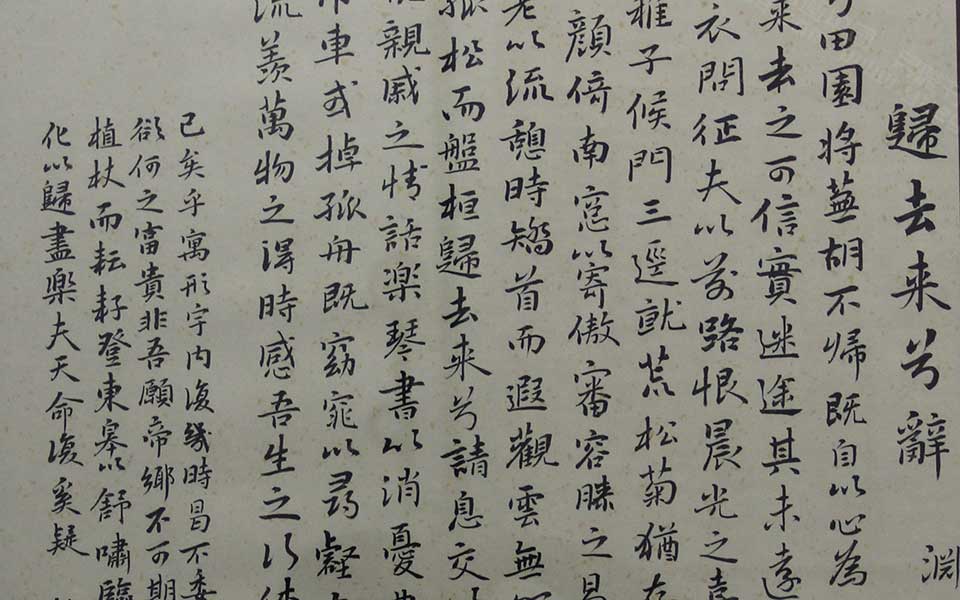 歸去来兮辭 淵
田園将蕪胡不帰既自以心為
来去之可信實迷途其未遠
衣問征夫以前路恨晨光之
稚子候門三逕就荒松菊猶存
顔倚南窓以寄傲審容膝之易
老以流憩時矯首而遐觀雲無
孤松而盤桓歸去来兮請息交
親戚之情話楽琴書以消憂
車或棹孤舟既窈窕以尋壑
流羨萬物之得時感吾生之行休
已矣乎寓形宇内復幾時曷不委
欲何之富貴非吾願帝郷不可期
植杖而耘耔登東皋以舒嘯臨
化以歸盡楽夫天命復奚疑